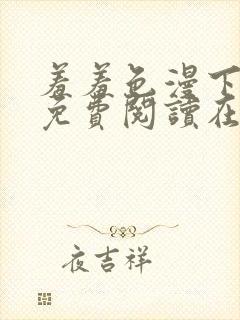 羞羞色漫下
免費閱讀在
夜吉祥